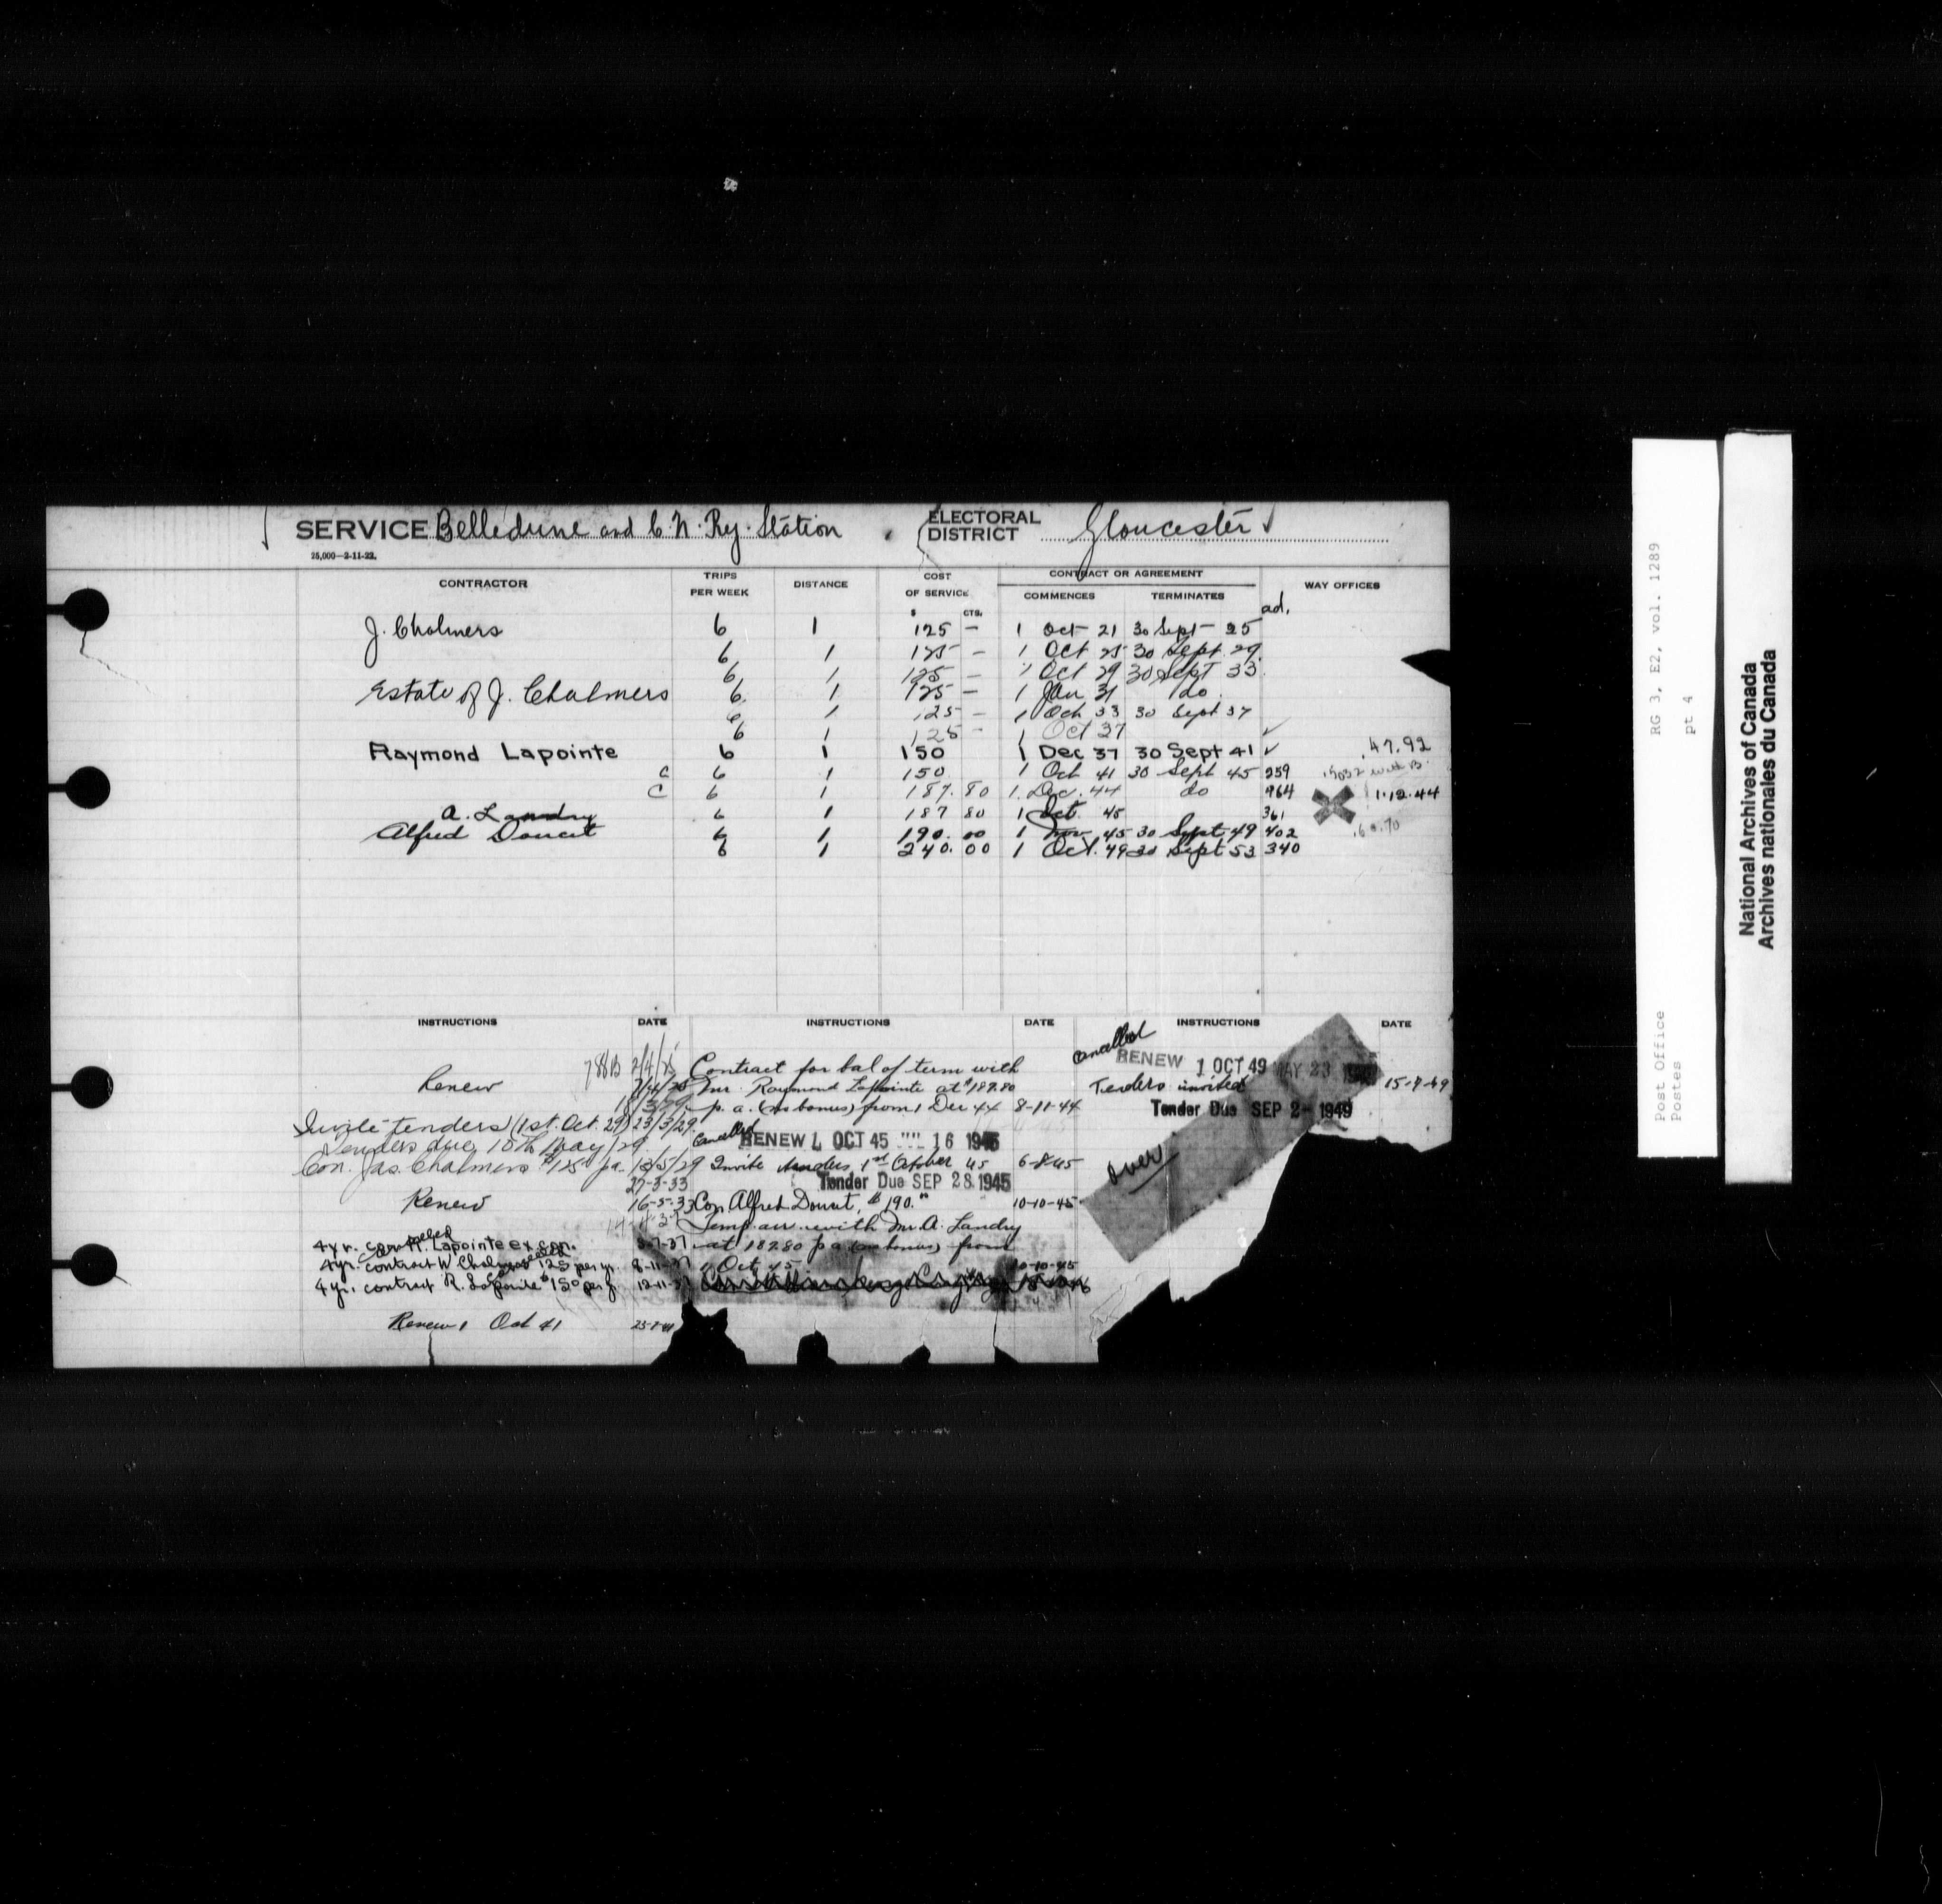 SERVICE Belledune and C.N. Ry. Station ELECTORAL DISTRICT Gloucester
25,000—2-11-22.
CONTRACTOR TRIPS PER WEEK DISTANCE COST OF SERVICE CONTRACT OR AGREEMENT WAY OFFICES
COMMENCES TERMINATES
$ CTS. ad.
J. Chalmers 6 1 125 — 1 Oct 21 30 Sept 25
6 1 125 — 1 Oct 25 30 Sept. 29
6 1 125 — 1 Oct 29 30 Sept 33
Estate of J. Chalmers 6 1 125 — 1 Jan 31 do.
6 1 125 — 1 Oct 33 30 Sept 37
6 1 125 — 1 Oct 37
Raymond Lapointe 6 1 150 1 Dec 37 30 Sept 41 ✓ 47.92
c 6 1 150 1 Oct 41 30 Sept 45 259
c 6 1 187.80 1 Dec. 44 do 964 1.12.44
A. Landry 6 1 187 80 1 Oct. 45 361
Alfred Doucet 6 1 190.00 1 Nov 45 30 Sept 49 402 .60.70
6 1 240.00 1 Oct. 49 30 Sept 53 340
INSTRUCTIONS DATE
788B 2/4/25
Renew
Invite tenders (1st. Oct. 29) 23/3/29.
Tenders due 10th May/29.
Con. Jas. Chalmers $125 pa. 13/5/29
27-3-33
Renew 16-5-33
4 yr. con. R. Lapointe ex con. cancelled 8-7-37
4 yr. contract W Chalmers 125 per yr. cancelled 8-11-37
4 yr. contract R. Lapointe $150 per y. 12-11-37
Renew 1 Oct 41
INSTRUCTIONS DATE
Contract for bal of term with
Mr. Raymond Lapointe at $187.80
p.a. (no bonus) from 1 Dec 44 8-11-44
cancelled
RENEW 1 OCT 45 16 1945
Invite tenders 1st October 45 6-8-45
Tender Due SEP 28 1945
Con. Alfred Doucet, $190.00 10-10-45
Temp arr. with Mr. A. Landry
at 187.80 p a (no bonus) from
1 Oct 45 10-10-45
INSTRUCTIONS DATE
cancelled
RENEW 1 OCT 49 MAY 23
Tenders invited 15-7-49
Tender Due SEP 2- 1949
over
Post Office RG 3, E2, vol. 1289
Postes pt 4
National Archives of Canada
Archives nationales du Canada